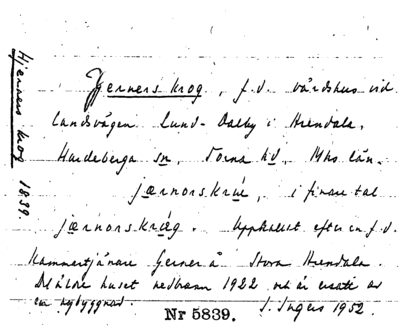 Hjerners krog 1839.
Hjerners krog, f.d. värdshus vid
landsvägen Lund-Dalby i Arendala,
Hardeberga sn, Torna hd, Mhs län.
jærnors kru, i finare tal
jærnors kræg. Uppkallat efter en f.d.
kammertjänare Gerner å Stora Arendala.
Det äldre huset nedbrann 1922 och är ersatt av
en nybyggnad. S. Ingers 1952.
Nr 5839.